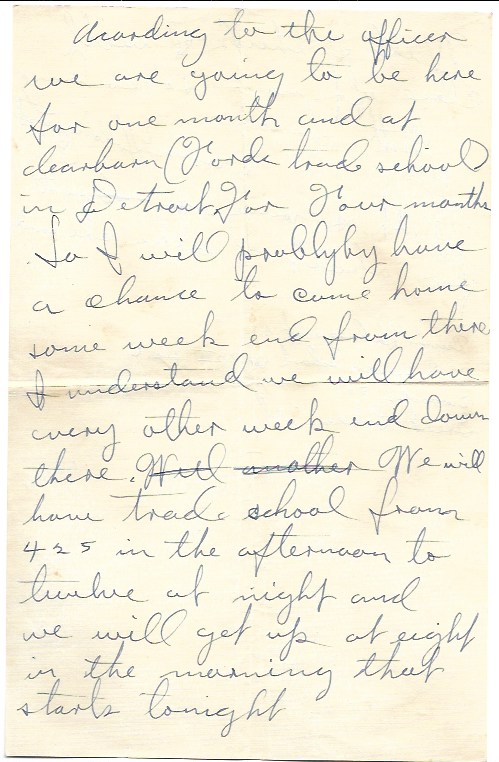 Acording to the officer
we are going to be here
for one month and at
dearborn (Fords trade school
in Detroit, For Four months
So I will problyby have
a chance to come home
some week end from there
I understand we will have
every other week end down
there. Well another We will
have trade school from
425 in the afternoon to
twelve at night and
we will get up at eight
in the morning that
starts tonight